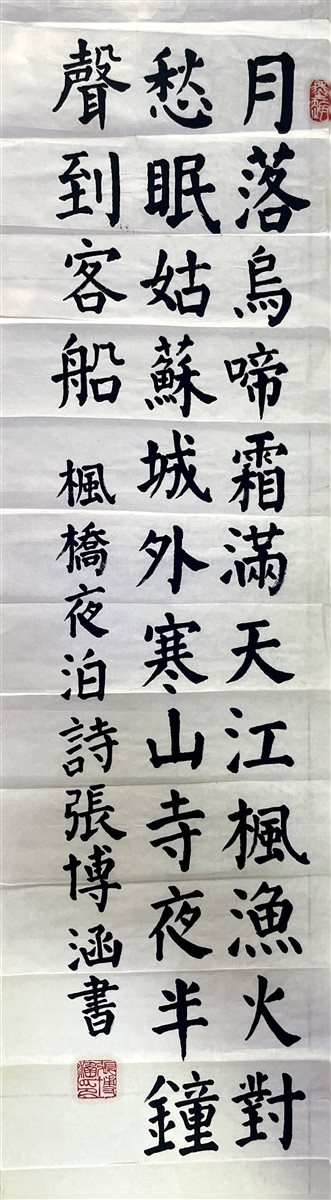 月落烏啼霜滿天江楓漁火對
愁眠姑蘇城外寒山寺夜半鐘
聲到客船 楓橋夜泊詩張博涵書
張博涵印